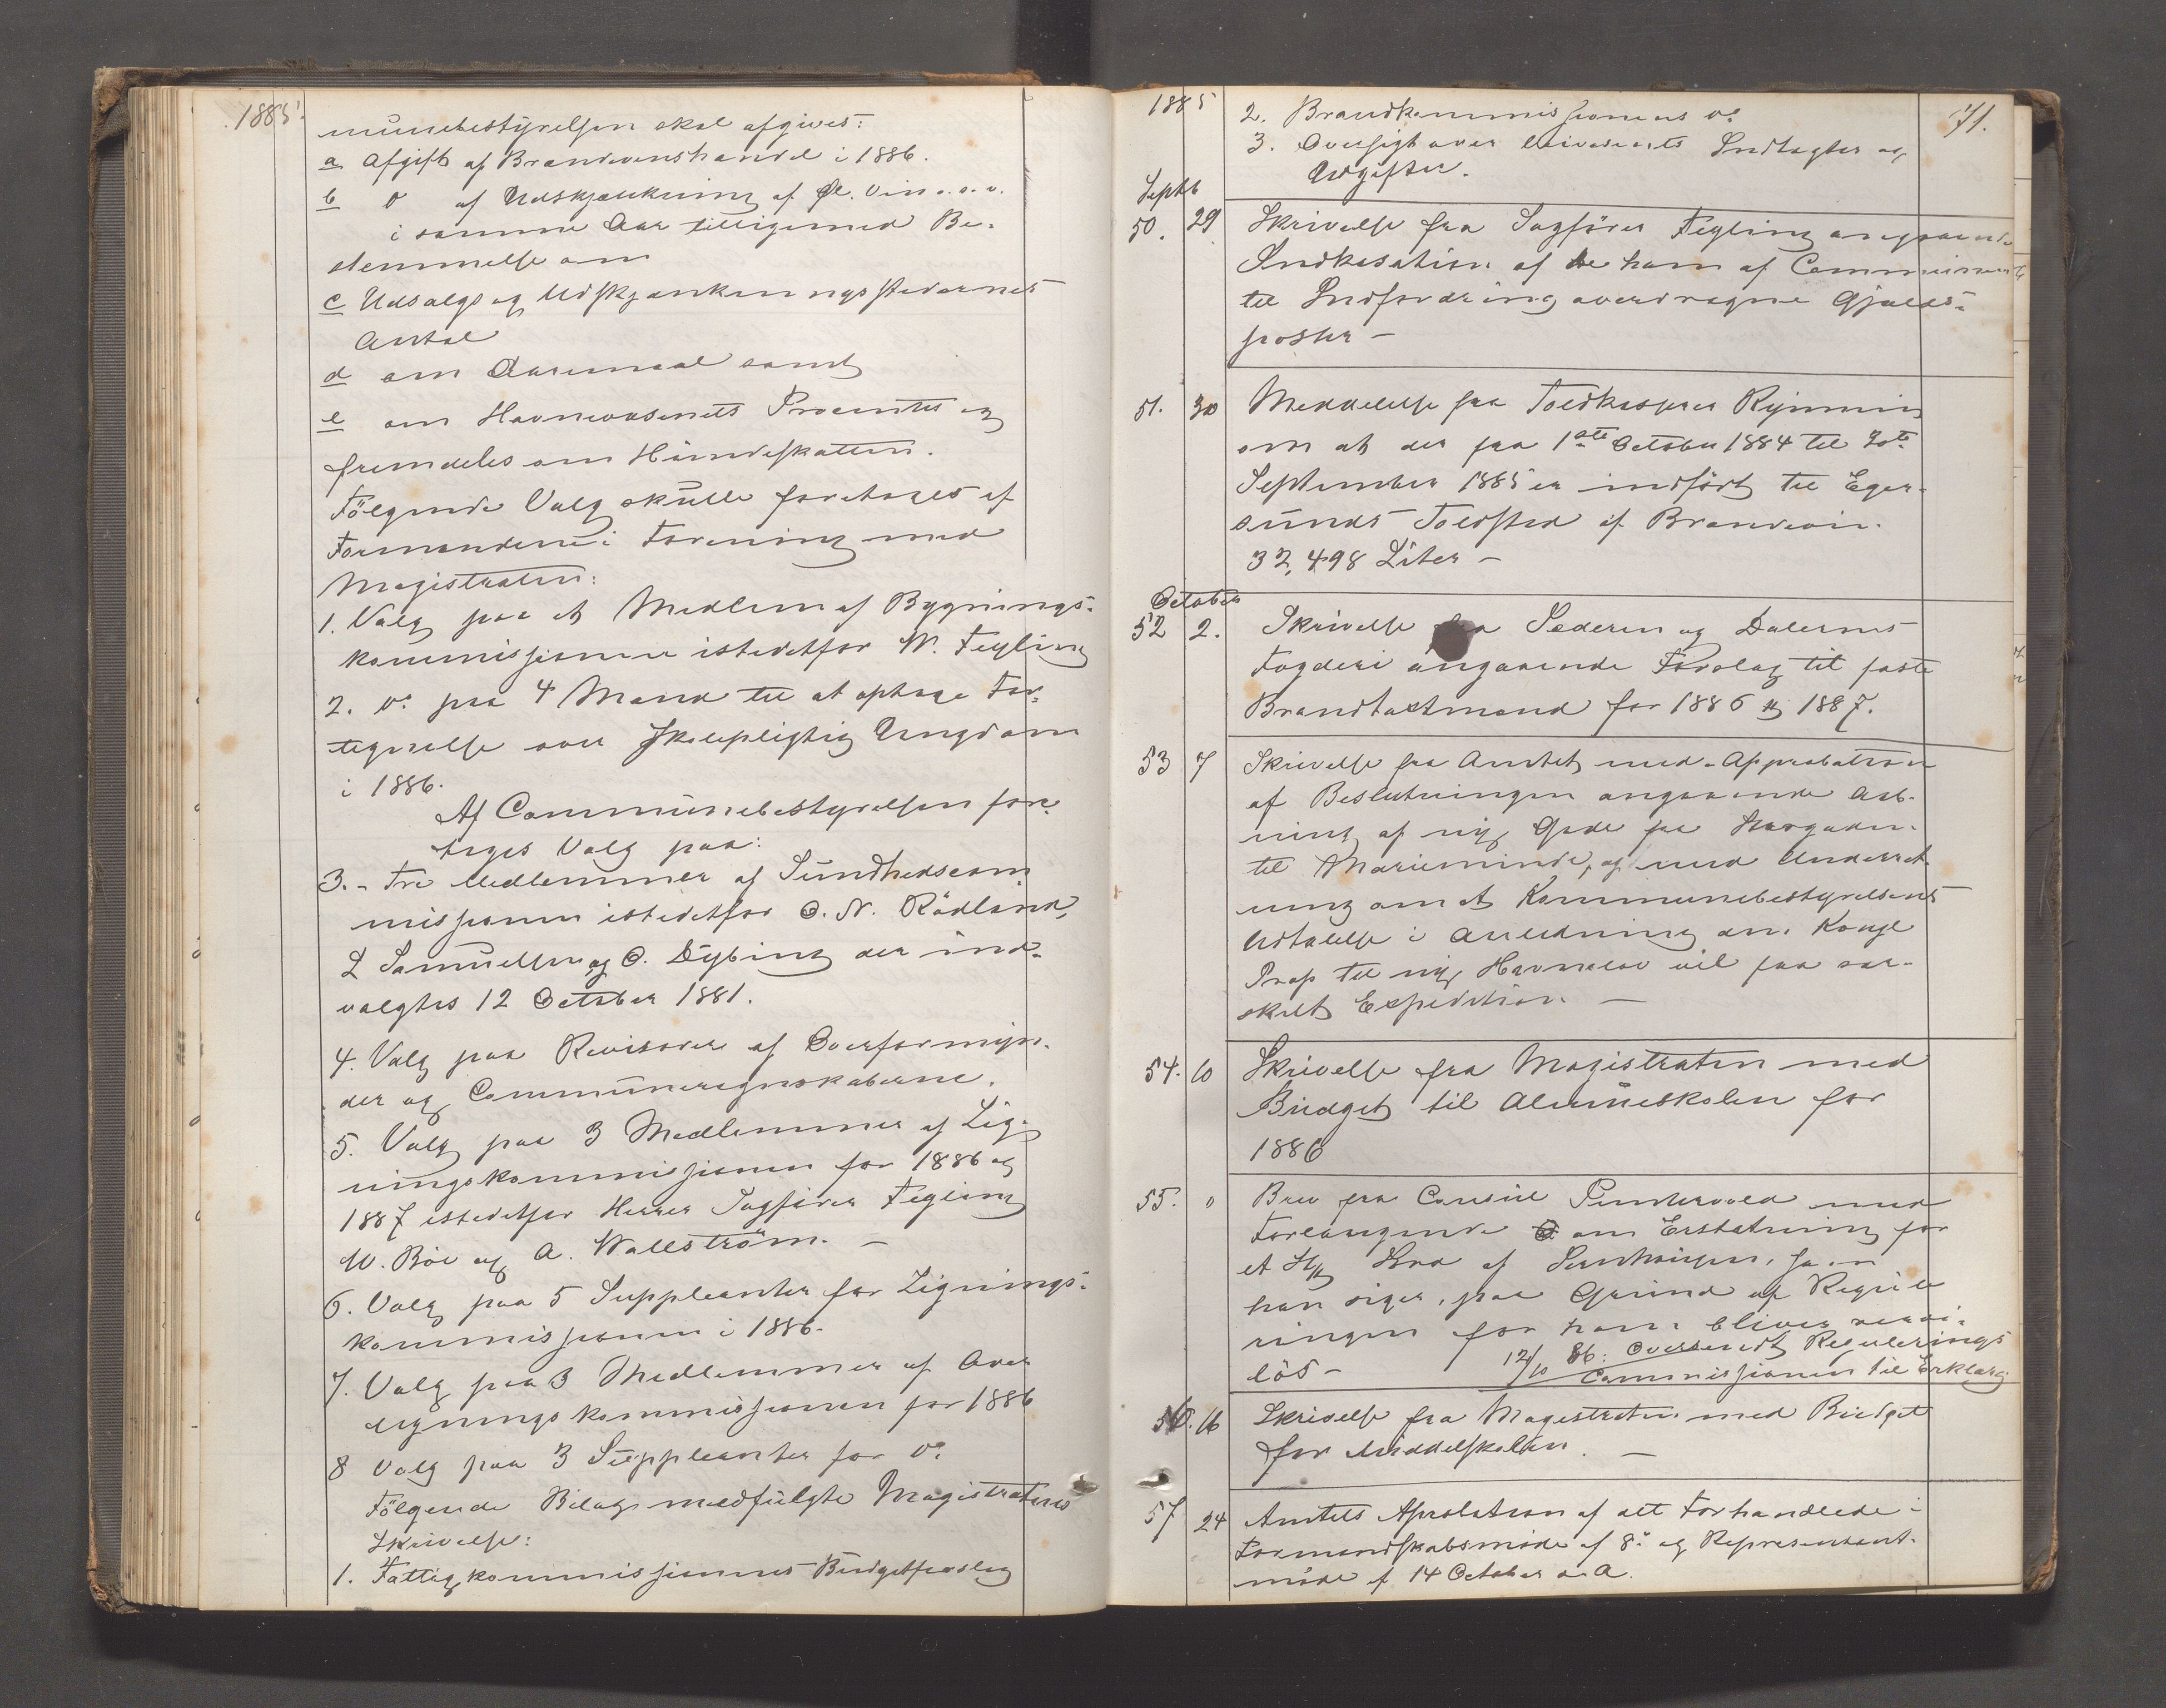 1885
munebestyrelsen skal afgives:
a Afgift af Brændevinshandel i 1886.
b do af Udskjænkning af Øl. Vin o.s.v.
i samme Aar tilligemed Be-
stemmelse om
c Udsalgs og Udskjænkningsstedernes
Antal
d om Aaremaal samt
e om Havnevæsenets Procenter og
fremdeles om Hundeskatten.
Følgende Valg skulle foretages af
Formændene i Forening med
Magistraten:
1. Valg paa et Medlem af Bygnings-
kommissionen istedetfor W. Feyling
2. do paa 4 Mænd til at optage For-
tegnelse over skolepligtig Ungdom
i 1886.
Af Communebestyrelsen fore-
tages Valg paa:
3. - Tre Medlemmer af Sundhedscom
missionen istedetfor O. N. Rödland,
L Samuelsen og O. Dybing der ind-
valgtes 12 October 1881.
4. Valg paa Revisorer af Overformyn-
der og Communeregnskaberne.
5. Valg paa 3 Medlemmer af Lig-
ningskommissionen for 1886 og
1887 istedetfor Herrer Sagfører Feyling
W. Böe og A. Wallström. -
6. Valg paa 5 Suppleanter for Lignings-
kommissionen i 1886.
7. Valg paa 3 Medlemmer af Over
ligningskommissionen for 1886
8 Valg paa 3 Suppleanter for do
Følgende Bilage medfulgte Magistratens
Skrivelse:
1. Fattigkommissionens Budgetforslag
1885
71.
2. Brandkommissionens do
3. Oversigt over Indtægter og
Udgifter.
Septb
50. 29 Skrivelse fra Sagfører Feyling angaaende
Indkasation af de ham af Communen
til Indfordring overdragne Gjælds-
poster -
51. 30 Meddelelse fra Toldkasserer Rynning
om at der fra 1ste October 1884 til 30te
September 1885 er indført til Eger-
sunds Toldsted af Brændevin
32,498 Liter -
October
52 2. Skrivelse fra Jæderen og Dalernes
Fogderi angaaende Forslag til faste
Brandtaxtmænd for 1886 og 1887.
53 7 Skrivelse fra Amtet med Approbation
af Beslutningen angaaende Aab-
ning af ny Gade fra
til Marieminde, og med Underret
ning om at Kommunebestyrelsens
Udtalelse i Anledning af Kongl
Prop til ny Havnelov vil faa sær-
skilt Expedition -
54. 10 Skrivelse fra Magistraten med
Budget til Almueskolen for
1886
55. " Brev fra Consül Puntervold med
Forlangende om Erstatning for
et Stk af som
han siger, paa Grund af Regule
ringen for ham bliver værdi-
lös -
12/10 86: Oversendt Regulerings
Commissionen til Erklærg
56. 16 Skrivelse fra Magistraten med Budget
for Middelskolen. -
57 24 Amtets Aprobation af det Forhandlede i
Formandskabsmöde af 8de og Representant-
möde af 14 October d. A.